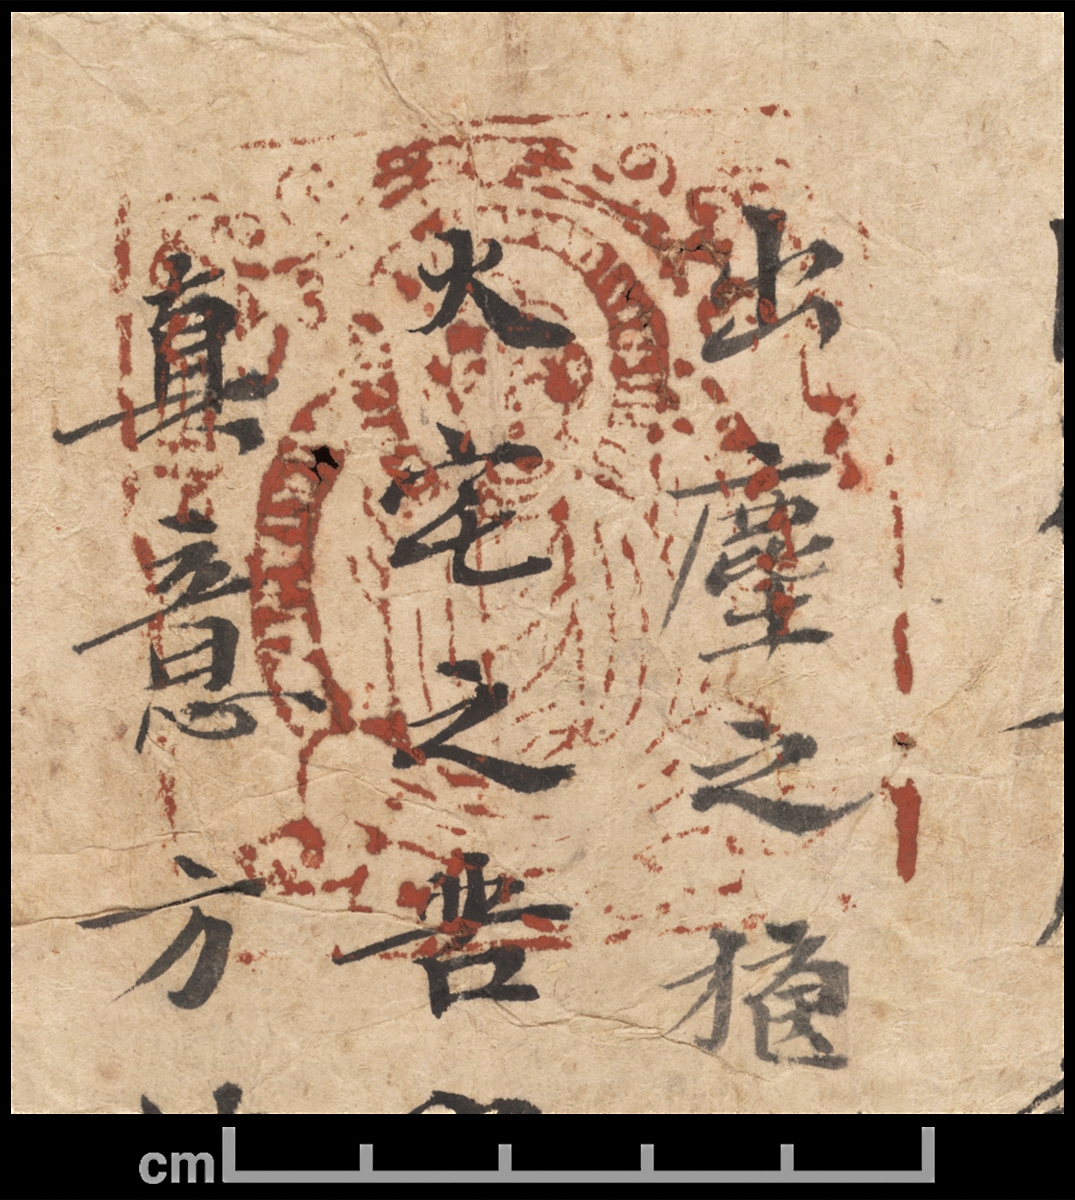 出塵之猶
火宅之苦
真意方
cm